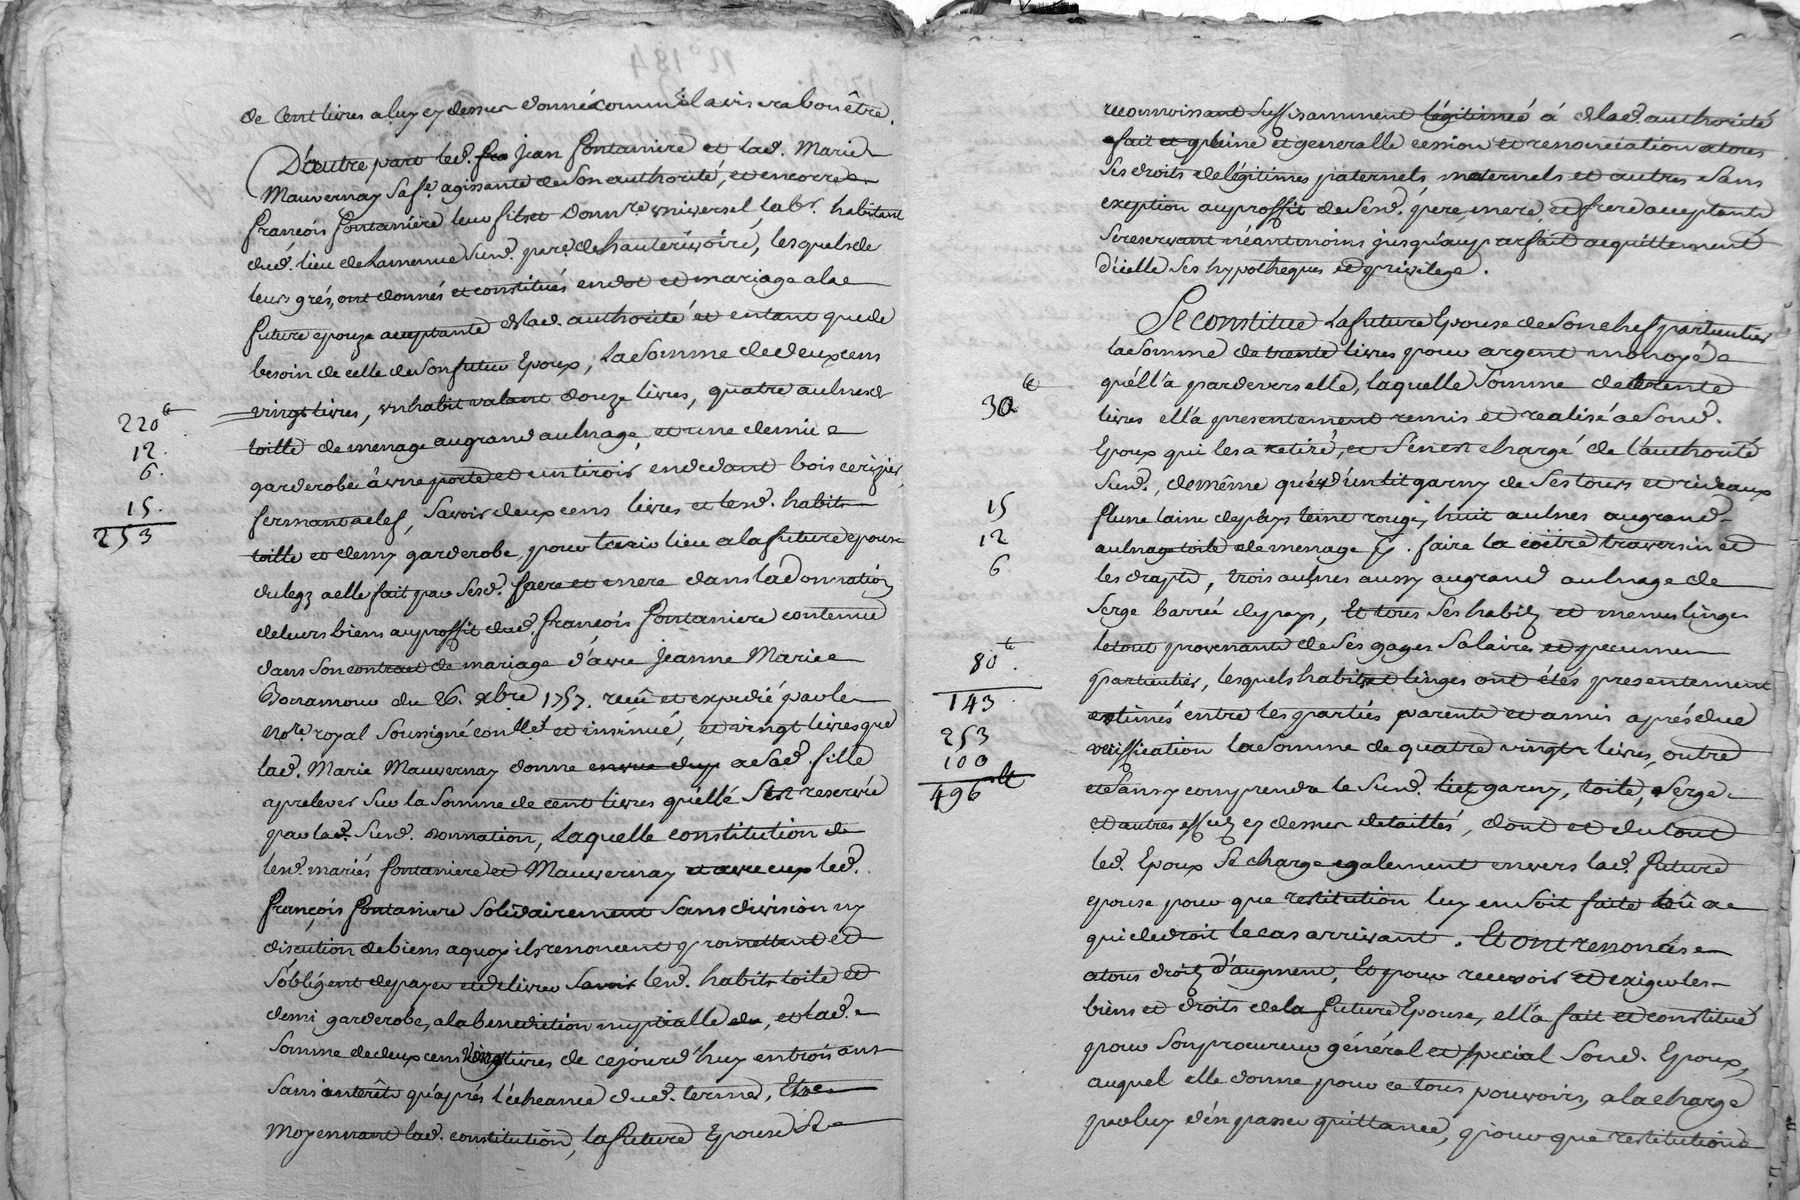 de Cent livres a luy cy dessus donné comm'il avisera bon être.
D'autre part led. Jean fontaniere et lad. Marie
Mauvernay sa fe. agissante de son authorité, et encorre
françois fontaniére leur fils et donnre. universel, labr. habitant
dud. lieu de Lamenue susd. parre. de hauterivoire, lesquels de
leurs grés, ont donnés et constitués en dot et mariage a la
future epouze acceptante de lad. authorité et entant que de
besoin de celle de son futur Epoux, La Somme de deux cens
vingt livres, un habit valant douze livres, quatre aulnes
toille de menage au grand aulnage, et une demie
garderobe à une porte et un tiroir en devant bois cerizier,
fermant a clef, Savoir deux cens livres et lesd. habits
toille et demy garderobe, pour tenir lieu a la future epouse
du legz a elle fait par sesd. pere et mere dans la Donnation
de leurs biens au proffit dud. françois fontaniere contenue
dans son contract de mariage d'avec Jeanne Marie
du 26. xbre 1757. recû et expedié par le
Notre. royal Soussigné conllé et insinué, et vingt livres que
lad. Marie Mauvernay donne a sad. fille
a prelever sur la Somme de cent livres qu'elle S'est reservée
par lad. susd. donnation, Laquelle constitution
lesd. mariés fontaniere et Mauvernay et avec eux led.
françois fontaniere Solidairement Sans division ny
discution de biens a quoy ils renoncent promettent et
S'obligent de payer et delivrer Savoir lesd. habits toile et
demi garderobe, a la benediction nuptialle, et lad.
Somme de deux cens vingt livres de ce jourd'huy en trois ans
Sans interêts qu'aprés l'écheance dud. terme, Et
Moyennant lad. constitution, la future Epouse Se
220 lt
12.
6.
15.
253
reconnoissant suffisamment légitimeé á de lad. authorité
fait et pleine et generalle cession et renonciation a tous
ses droits de légitimes paternels maternels et autres sans
exeption au proffit de sesd. pere, mere et frere acceptants
se reservant néantmoins jusqu'au parfait acquittement
d'icelle ses hypotheques et privilege.
Se constitue La future Epouse de Son chef particulier
la Somme de trente livres pour argent monoyé
qu'éll'a pardevers elle, laquelle Somme de trente
livres ell'a presentement remis et realisé a Sond.
Epoux qui les a retiré, et S'en est chargé de l'authorité
susd., de même qué d'un lit garny de Ses tours et rideaux
laine de pays teint rouge, huit aulnes au grand
aulnage toile de menage p. faire la coître traversin et
les drapts, trois aulnes aussy au grand aulnage de
Serge barrée de pays, Et tous Ses habits et menus linges
le tout provenant de Ses gages Salaires et pecune
particulier, lesquels habits et linges ont étés presentement
estimés entre les parties parents et amis aprés due
veriffication la Somme de quatre vingts livres, outre
et sans y comprendre le susd. lit garny, toile, Serge
et autres effets cy dessus detaillés, dont et du tout
led. Epoux Se charge egalement envers lad. future
epouse pour que restitution luy en soit faite ou a
qui de droit le cas arrivant. Et ont renoncés
a tous droits d'augment, Et pour recevoir et exiger les
biens et droits de la future Epouse, ell'a fait et constitué
pour Son procureur général et special Sond. Epoux,
auquel elle donne pour ce tous pouvoirs, a la charge
par luy d'en passer quittance, pour que restitution
30 lt
15
12
6
80 lt.
143
253
100
496 lt